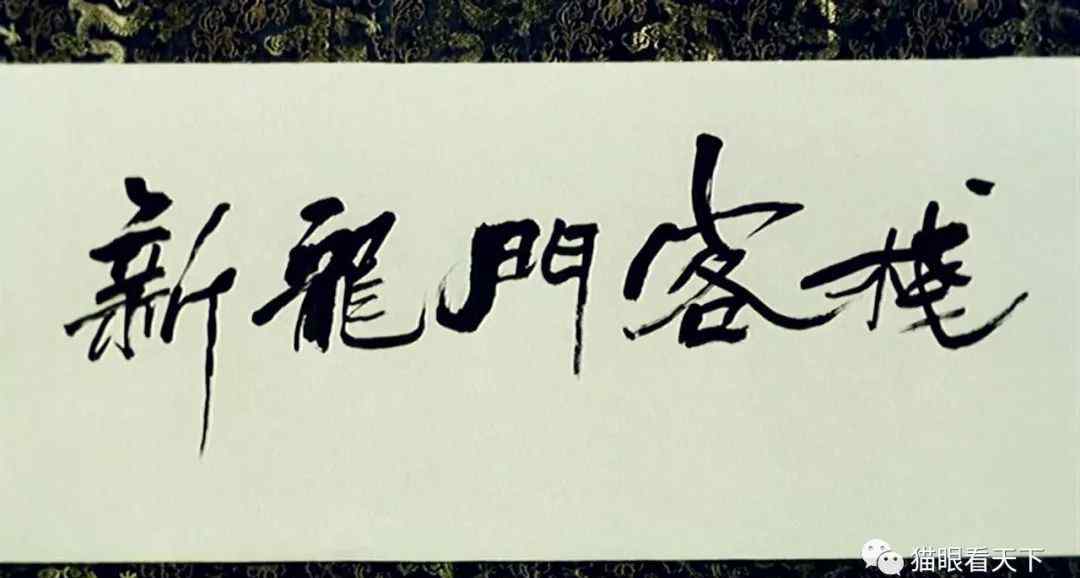 新龍門客棧
猫眼看天下